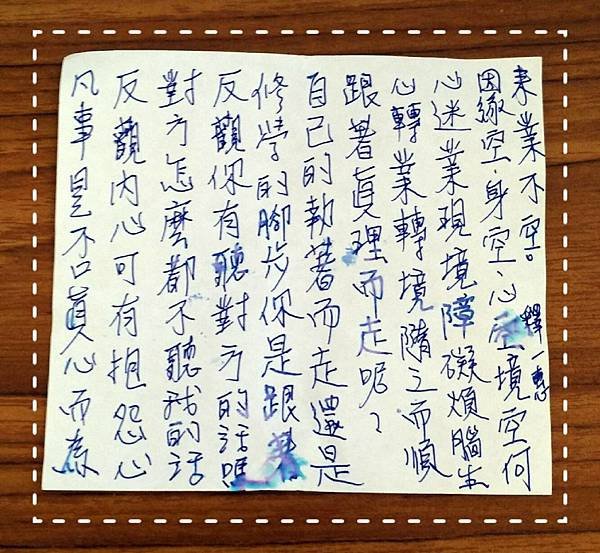 凡事是否真心而為
反觀內心可有抱怨心
對方怎麼都不聽我的話
反觀你有聽對方的話嗎
修學的腳步你是跟著
自己的執著而走還是
跟著真理而走呢?
心轉業轉境隨之而順
心迷業現境障礙煩腦生
因緣空、身空、心空境空何
來業不空。
釋一惠